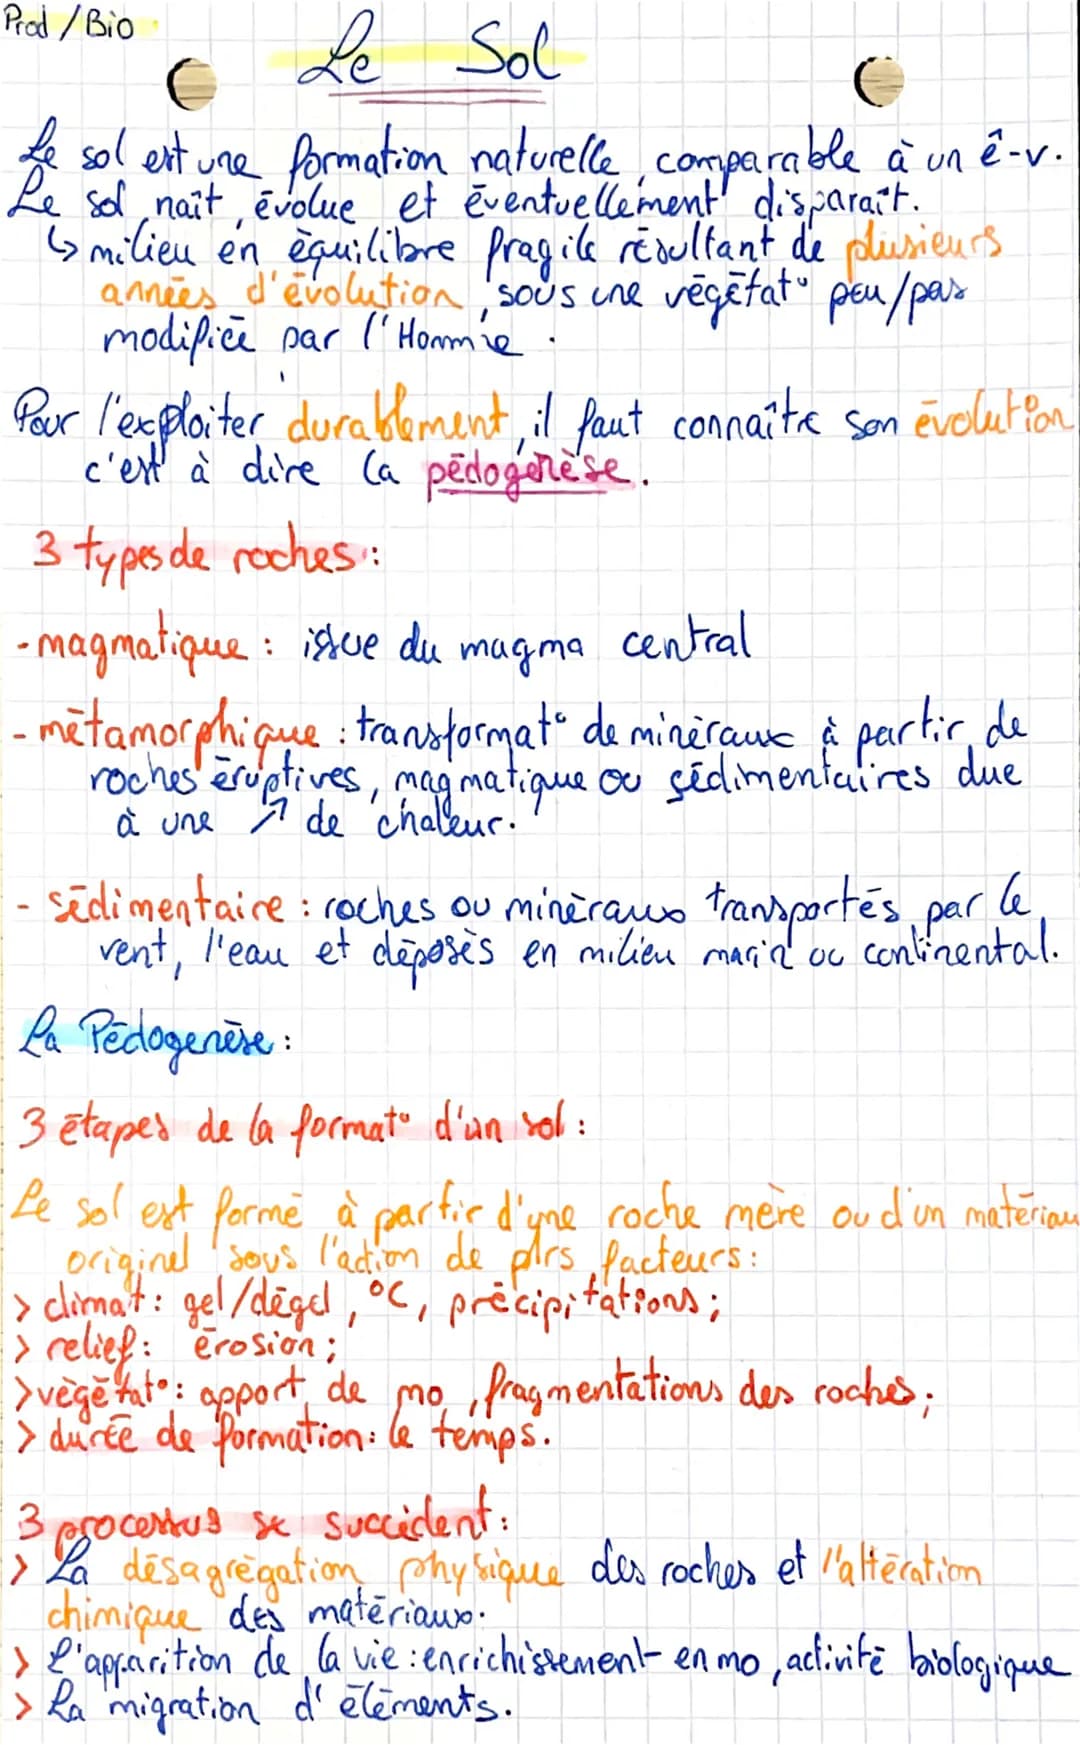 Prod / Bio
Le Sol
Le sol est une formation naturelle, comparable à un ê-v.
Le sol naît, évolue et éventuellement disparaît.
↳ milieu en équilibre fragile résultant de plusieurs
années d'évolution, sous une végétat° peu/pas
modifiée par l'Homme.
Pour l'exploiter durablement, il faut connaître son évolution
c'est à dire la pédogénèse.
3 types de roches :
- magmatique : issue du magma central
- métamorphique : transformat° de minéraux à partir de
roches éruptives, magmatique ou sédimentaires due
à une ↗ de chaleur.
- sédimentaire : roches ou minéraux transportés par le
vent, l'eau et déposés en milieu marin ou continental.
La Pédogenèse :
3 étapes de la format° d'un sol :
Le sol est formé à partir d'une roche mère ou d'un matériau
originel sous l'action de plrs facteurs :
> climat : gel/dégel, °C, précipitations ;
> relief : érosion ;
> végétat° : apport de mo, fragmentations des roches ;
> durée de formation : le temps.
3 processus se succèdent :
> La désagrégation physique des roches et l'altération
chimique des matériaux.
> L'apparition de la vie : enrichissement en mo, activité biologique
> La migration d'éléments.